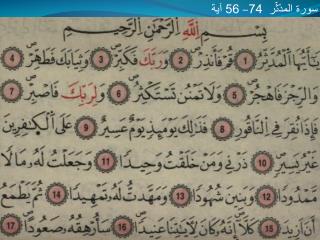 سورة المدّثّر 74– 56 آية
بِسْمِ ٱللَّهِ ٱلرَّحْمَٰنِ ٱلرَّحِيمِ
يَـٰٓأَيُّهَا ٱلْمُدَّثِّرُ 1 قُمْ فَأَنذِرْ 2 وَرَبَّكَ فَكَبِّرْ 3 وَثِيَابَكَ فَطَهِّرْ 4
وَٱلرُّجْزَ فَٱهْجُرْ 5 وَلَا تَمْنُن تَسْتَكْثِرُ 6 وَلِرَبِّكَ فَٱصْبِرْ 7
فَإِذَا نُقِرَ فِى ٱلنَّاقُورِ 8 فَذَٰلِكَ يَوْمَئِذٍ يَوْمٌ عَسِيرٌ 9 عَلَى ٱلْكَـٰفِرِينَ
غَيْرُ يَسِيرٍ 10 ذَرْنِى وَمَنْ خَلَقْتُ وَحِيدًا 11 وَجَعَلْتُ لَهُۥ مَالًا
مَّمْدُودًا 12 وَبَنِينَ شُهُودًا 13 وَمَهَّدتُّ لَهُۥ تَمْهِيدًا 14 ثُمَّ يَطْمَعُ
أَنْ أَزِيدَ 15 كَلَّآ إِنَّهُۥ كَانَ لِـَٔايَـٰتِنَا عَنِيدًا 16 سَأُرْهِقُهُۥ صَعُودًا 17